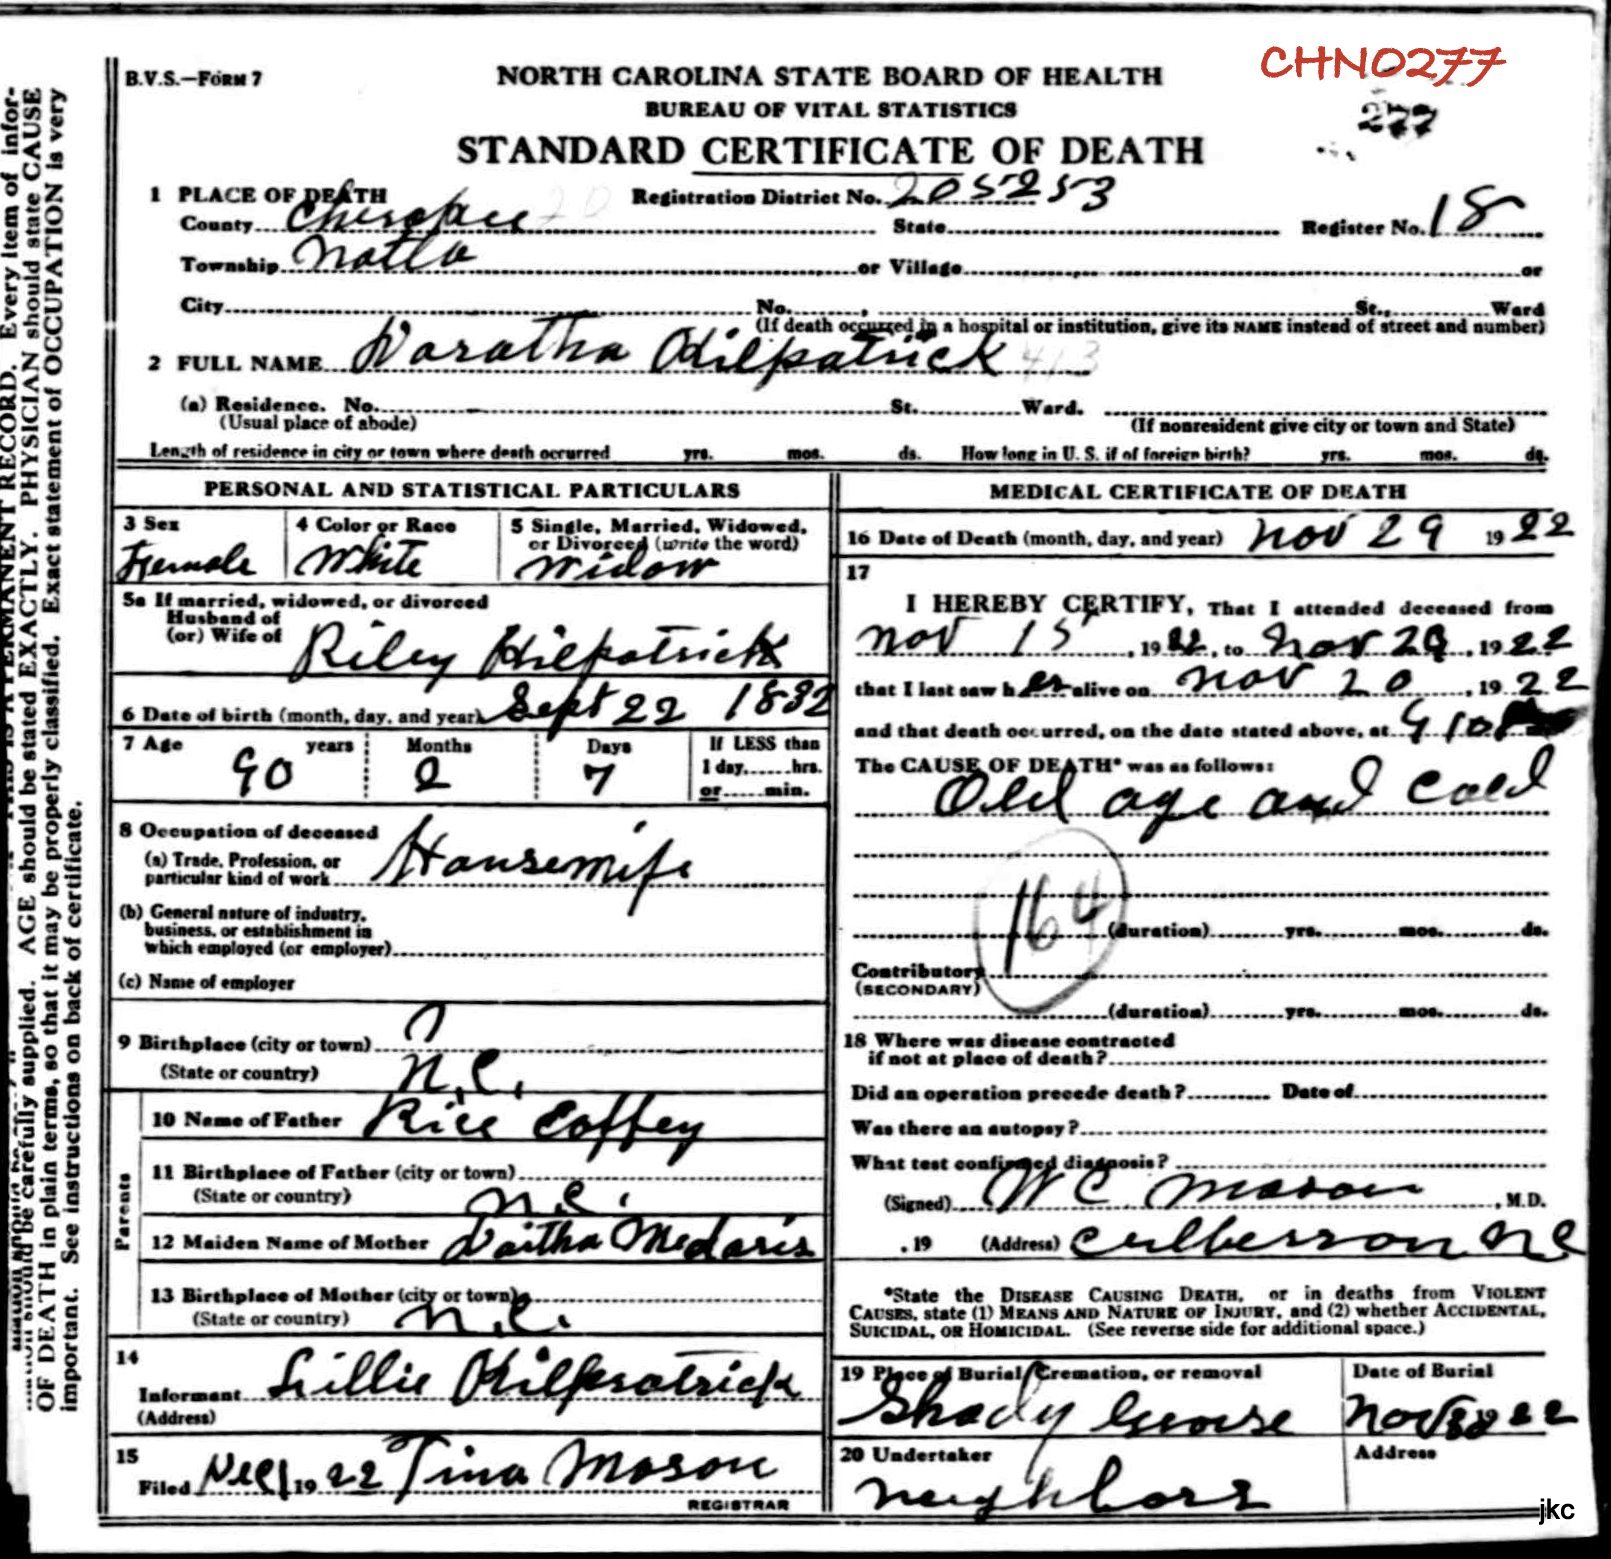 CHNO277
B.V.S.—FORM 7
NORTH CAROLINA STATE BOARD OF HEALTH
277
BUREAU OF VITAL STATISTICS
STANDARD CERTIFICATE OF DEATH
1 PLACE OF DEATH Registration District No. 205253
County Cherokee 20 State Register No. 18
Township Notla or Village or
City No. , St., Ward
(If death occurred in a hospital or institution, give its NAME instead of street and number)
2 FULL NAME Doratha Kilpatrick 413
(a) Residence. No. St. Ward.
(Usual place of abode) (If nonresident give city or town and State)
Length of residence in city or town where death occurred yrs. mos. ds. How long in U. S. if of foreign birth? yrs. mos. ds.
PERSONAL AND STATISTICAL PARTICULARS
3 Sex 4 Color or Race 5 Single, Married, Widowed,
or Divorced (write the word)
Female White Widow
5a If married, widowed, or divorced
Husband of
(or) Wife of Riley Kilpatrick
6 Date of birth (month, day, and year) Sept 22 1832
7 Age years Months Days If LESS than
1 day......hrs.
90 2 7
or......min.
8 Occupation of deceased
(a) Trade, Profession, or
particular kind of work Housewife
(b) General nature of industry,
business, or establishment in
which employed (or employer)
(c) Name of employer
9 Birthplace (city or town) ?
(State or country) N.C.
Parents
10 Name of Father Rice Coffey
11 Birthplace of Father (city or town)
(State or country) N.C.
12 Maiden Name of Mother Daitha Medaris
13 Birthplace of Mother (city or town)
(State or country) N.C.
14
Informant Lillie Kilpatrick
(Address)
15
Filed Dec 1 1922 Tina Mason
REGISTRAR
MEDICAL CERTIFICATE OF DEATH
16 Date of Death (month, day, and year) Nov 29 1922
17
I HEREBY CERTIFY, That I attended deceased from
Nov 15, 1922, to Nov 29, 1922
that I last saw her alive on Nov 20, 1922
and that death occurred, on the date stated above, at
The CAUSE OF DEATH* was as follows:
Old age and Cold
164
(duration) yrs. mos. ds.
Contributory
(SECONDARY)
(duration) yrs. mos. ds.
18 Where was disease contracted
if not at place of death?
Did an operation precede death? Date of
Was there an autopsy?
What test confirmed diagnosis?
(Signed) W C Mason, M.D.
, 19 (Address) Culberson NC
*State the DISEASE CAUSING DEATH, or in deaths from VIOLENT
CAUSES, state (1) MEANS AND NATURE OF INJURY, and (2) whether ACCIDENTAL,
SUICIDAL, OR HOMICIDAL. (See reverse side for additional space.)
19 Place of Burial, Cremation, or removal Date of Burial
Shady Grove Nov 22
20 Undertaker Address
Neighbors
jkc
mation should be carefully supplied. AGE should be stated EXACTLY. PHYSICIAN should state CAUSE
OF DEATH in plain terms, so that it may be properly classified. Exact statement of OCCUPATION is very
important. See instructions on back of certificate.